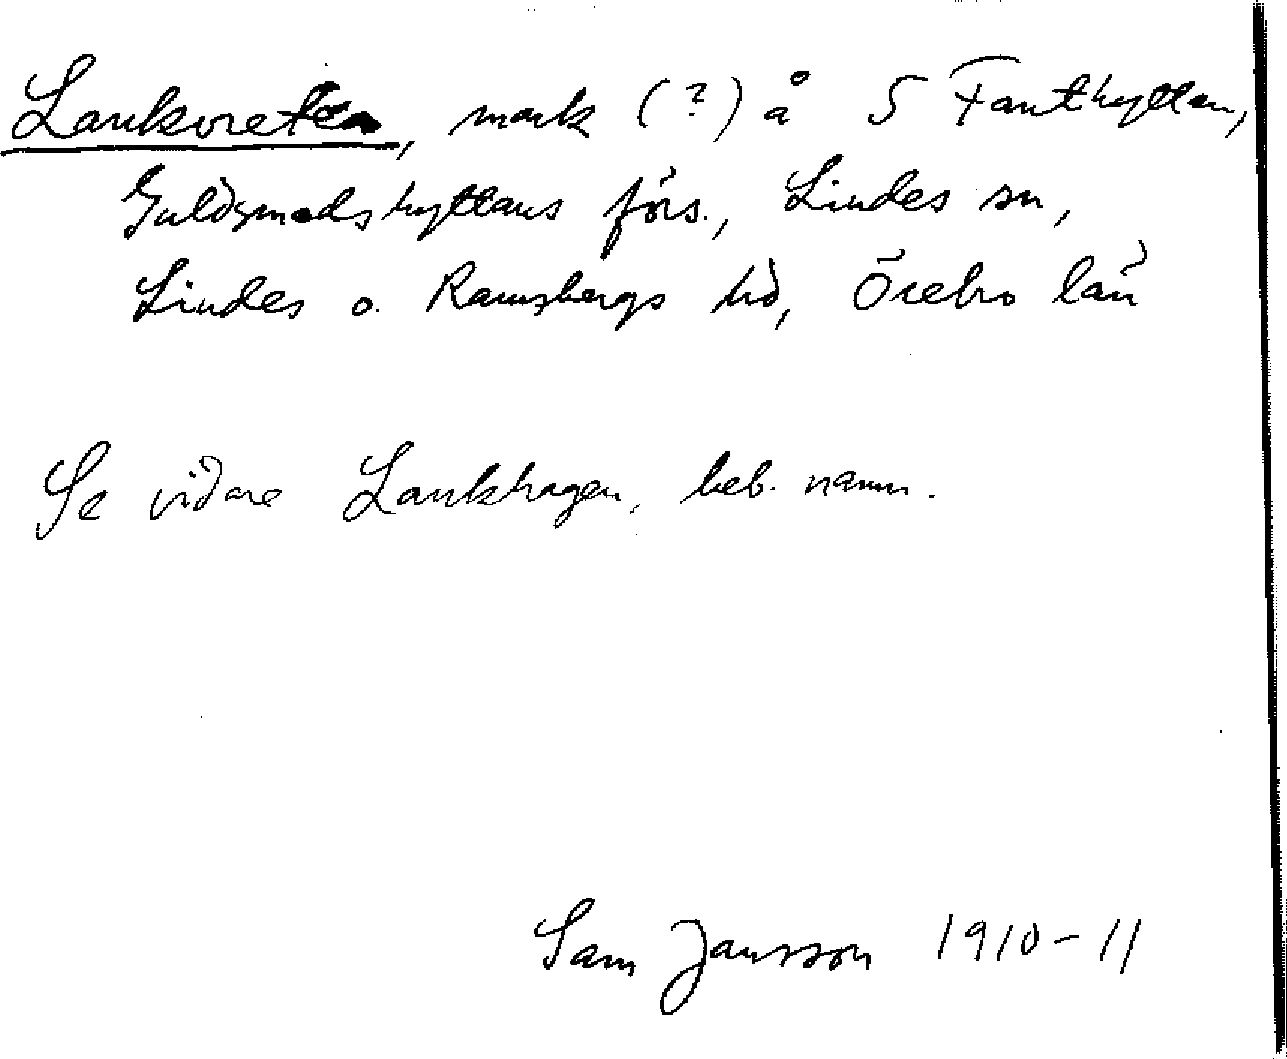 Lankvreten, mark (?) å S Fanthyttan,
Guldsmedshyttans förs., Lindes sn,
Lindes o. Ramsbergs hd, Örebro län
Se vidare Lankhagen, beb. namn.
Sam Jansson 1910-11